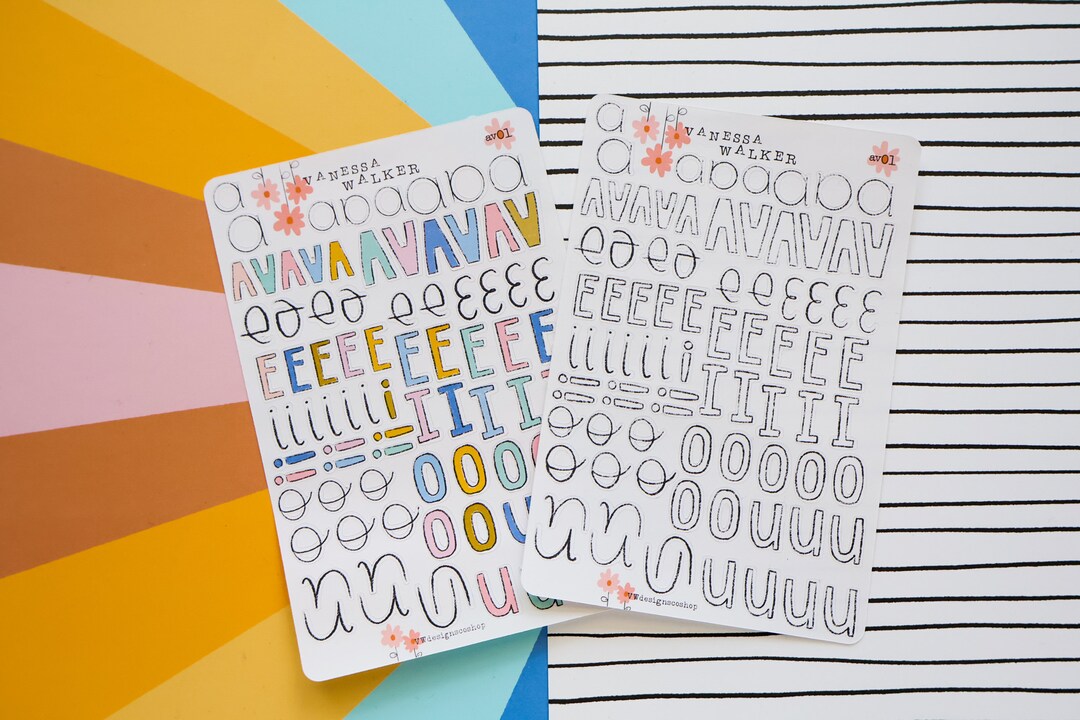 av01
VANESSA
WALKER
a
a a a a a a
A A A A A A A A A A
e e e e e ε ε ε ε
E E E E E E E E E E
i i i i i i i I I I I
O O O O
O O U
u u u u u
VWdesignscoshop
av01
VANESSA
WALKER
a
a a a a a a
A A A A A A A A A A
e e e e e ε ε ε ε
E E E E E E E E E E
i i i i i i i I I I I I
O O O O O
O O u u u u
u u u u u u u
VWdesignscoshop